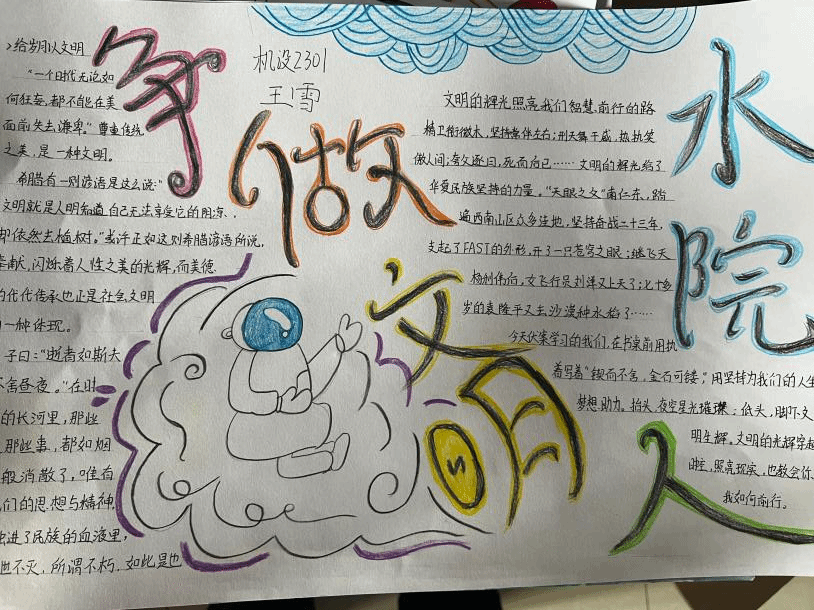 争做文明水院人
机设2301
王雪
给岁月以文明
“一个时代无论如
何狂妄,都不能在美
面前失去谦卑。”尊重传统
之美,是一种文明。
希腊有一则谚语是这么说:“
文明就是人明知道自己无法享受它的阴凉、
却依然去植树。”或许正如这则希腊谚语所说,
奉献,闪烁着人性之美的光辉,而美德
的代代传承也正是社会文明
的一种体现。
子曰:“逝者如斯夫
不舍昼夜。”在时
的长河里,那些
那些事,都如烟
般消散了,唯有
们的思想与精神,
进了民族的血液里,
不灭,所谓不朽,如此是也
文明的辉光照亮我们智慧前行的路
精卫衔微木,坚持条伴左右;刑天舞干戚,热执笑
傲人间;夸父逐日,死而后已……文明的辉光给了
华夏民族坚持的力量。“天眼之父”南仁东,踏
遍西南山区众多洼地,坚持奋战二十三年,
支起了FAST的外形,开了一只苍穹之眼;继飞天
杨利伟后,女飞行员刘洋又上天了;七十多
岁的袁隆平又去沙漠种水稻了……
今天伏案学习的我们,在书桌前用执
着写着“锲而不舍,金石可镂”,用坚持为我们的人生
梦想助力。抬头,夜空星光璀璨;低头,脚下文
明生辉。文明的光辉穿越
照亮现实,也教会你
我如何前行。